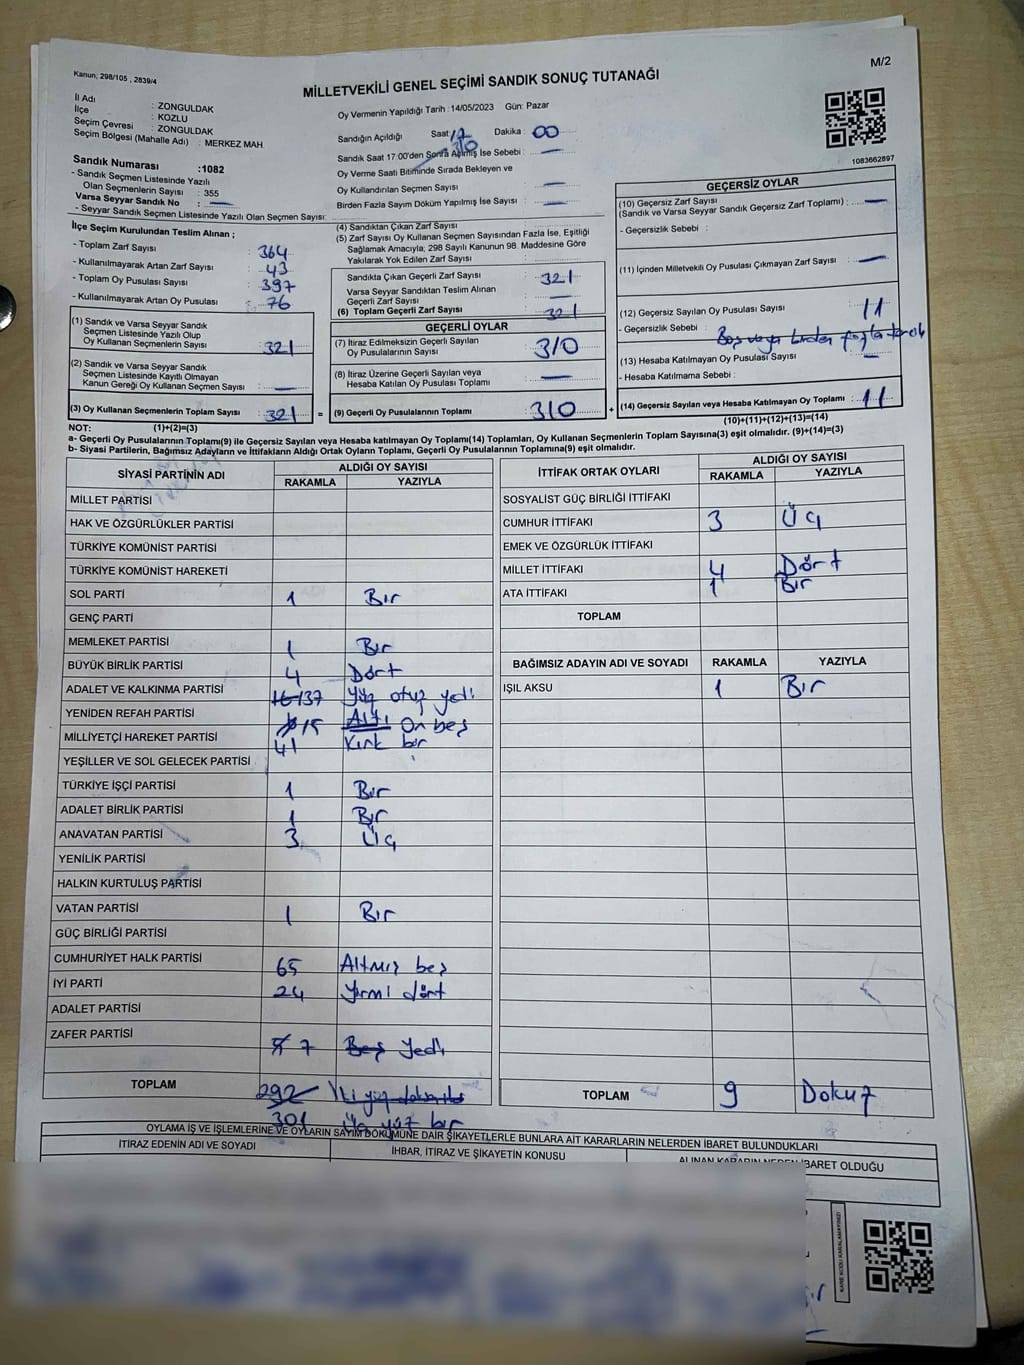 Kanun; 298/105 , 2839/4
M/2
MİLLETVEKİLİ GENEL SEÇİMİ SANDIK SONUÇ TUTANAĞI
İl Adı : ZONGULDAK
İlçe : KOZLU
Seçim Çevresi : ZONGULDAK
Seçim Bölgesi (Mahalle Adı) : MERKEZ MAH
Sandık Numarası :1082
- Sandık Seçmen Listesinde Yazılı
Olan Seçmenlerin Sayısı : 355
Varsa Seyyar Sandık No : —
- Seyyar Sandık Seçmen Listesinde Yazılı Olan Seçmen Sayısı:
Oy Vermenin Yapıldığı Tarih :14/05/2023 Gün: Pazar
Sandığın Açıldığı Saat: 17 Dakika : 00
Sandık Saat 17:00'den Sonra Açılmış İse Sebebi : —
Oy Verme Saati Bitiminde Sırada Bekleyen ve
Oy Kullandırılan Seçmen Sayısı : —
Birden Fazla Sayım Döküm Yapılmış İse Sayısı : —
1083662897
İlçe Seçim Kurulundan Teslim Alınan ;
- Toplam Zarf Sayısı : 364
- Kullanılmayarak Artan Zarf Sayısı : 43
- Toplam Oy Pusulası Sayısı : 397
- Kullanılmayarak Artan Oy Pusulası : 76
(1) Sandık ve Varsa Seyyar Sandık
Seçmen Listesinde Yazılı Olup
Oy Kullanan Seçmenlerin Sayısı : 321
(2) Sandık ve Varsa Seyyar Sandık
Seçmen Listesinde Kayıtlı Olmayan
Kanun Gereği Oy Kullanan Seçmen Sayısı : —
(3) Oy Kullanan Seçmenlerin Toplam Sayısı : 321 =
(1)+(2)=(3)
(4) Sandıktan Çıkan Zarf Sayısı :
(5) Zarf Sayısı Oy Kullanan Seçmen Sayısından Fazla İse, Eşitliği
Sağlamak Amacıyla; 298 Sayılı Kanunun 98. Maddesine Göre
Yakılarak Yok Edilen Zarf Sayısı :
Sandıkta Çıkan Geçerli Zarf Sayısı : 321
Varsa Seyyar Sandıktan Teslim Alınan
Geçerli Zarf Sayısı : —
(6) Toplam Geçerli Zarf Sayısı : 321
GEÇERLİ OYLAR
(7) İtiraz Edilmeksizin Geçerli Sayılan
Oy Pusulalarının Sayısı : 310
(8) İtiraz Üzerine Geçerli Sayılan veya
Hesaba Katılan Oy Pusulası Toplamı : —
(9) Geçerli Oy Pusulalarının Toplamı : 310 +
GEÇERSİZ OYLAR
(10) Geçersiz Zarf Sayısı
(Sandık ve Varsa Seyyar Sandık Geçersiz Zarf Toplamı) : —
- Geçersizlik Sebebi :
(11) İçinden Milletvekili Oy Pusulası Çıkmayan Zarf Sayısı : —
(12) Geçersiz Sayılan Oy Pusulası Sayısı : 11
- Geçersizlik Sebebi : Boş veya birden fazla tercih
(13) Hesaba Katılmayan Oy Pusulası Sayısı : —
- Hesaba Katılmama Sebebi :
(14) Geçersiz Sayılan veya Hesaba Katılmayan Oy Toplamı : 11
(10)+(11)+(12)+(13)=(14)
NOT:
a- Geçerli Oy Pusulalarının Toplamı(9) ile Geçersiz Sayılan veya Hesaba katılmayan Oy Toplamı(14) Toplamları, Oy Kullanan Seçmenlerin Toplam Sayısına(3) eşit olmalıdır. (9)+(14)=(3)
b- Siyasi Partilerin, Bağımsız Adayların ve İttifakların Aldığı Ortak Oyların Toplamı, Geçerli Oy Pusulalarının Toplamına(9) eşit olmalıdır.
SİYASİ PARTİNİN ADI ALDIĞI OY SAYISI
RAKAMLA YAZIYLA
MİLLET PARTİSİ
HAK VE ÖZGÜRLÜKLER PARTİSİ
TÜRKİYE KOMÜNİST PARTİSİ
TÜRKİYE KOMÜNİST HAREKETİ
SOL PARTİ 1 Bir
GENÇ PARTİ
MEMLEKET PARTİSİ 1 Bir
BÜYÜK BİRLİK PARTİSİ 4 Dört
ADALET VE KALKINMA PARTİSİ 137 Yüz otuz yedi
YENİDEN REFAH PARTİSİ 15 Altı On beş
MİLLİYETÇİ HAREKET PARTİSİ 41 Kırk bir
YEŞİLLER VE SOL GELECEK PARTİSİ
TÜRKİYE İŞÇİ PARTİSİ 1 Bir
ADALET BİRLİK PARTİSİ 1 Bir
ANAVATAN PARTİSİ 3 Üç
YENİLİK PARTİSİ
HALKIN KURTULUŞ PARTİSİ
VATAN PARTİSİ 1 Bir
GÜÇ BİRLİĞİ PARTİSİ
CUMHURİYET HALK PARTİSİ 65 Altmış beş
İYİ PARTİ 24 Yirmi dört
ADALET PARTİSİ
ZAFER PARTİSİ 5 7 Beş Yedi
TOPLAM 292 İki yüz doksan iki
301 Üç yüz bir
İTTİFAK ORTAK OYLARI ALDIĞI OY SAYISI
RAKAMLA YAZIYLA
SOSYALİST GÜÇ BİRLİĞİ İTTİFAKI
CUMHUR İTTİFAKI 3 Üç
EMEK VE ÖZGÜRLÜK İTTİFAKI
MİLLET İTTİFAKI 4 Dört
ATA İTTİFAKI 1 Bir
TOPLAM
BAĞIMSIZ ADAYIN ADI VE SOYADI RAKAMLA YAZIYLA
IŞIL AKSU 1 Bir
TOPLAM 9 Dokuz
OYLAMA İŞ VE İŞLEMLERİNE VE OYLARIN SAYIM DÖKÜMÜNE DAİR ŞİKAYETLERLE BUNLARA AİT KARARLARIN NELERDEN İBARET BULUNDUKLARI
İTİRAZ EDENİN ADI VE SOYADI İHBAR, İTİRAZ VE ŞİKAYETİN KONUSU ALINAN KARARIN NEDEN İBARET OLDUĞU
KARE KODU KARALAMAYINIZ!